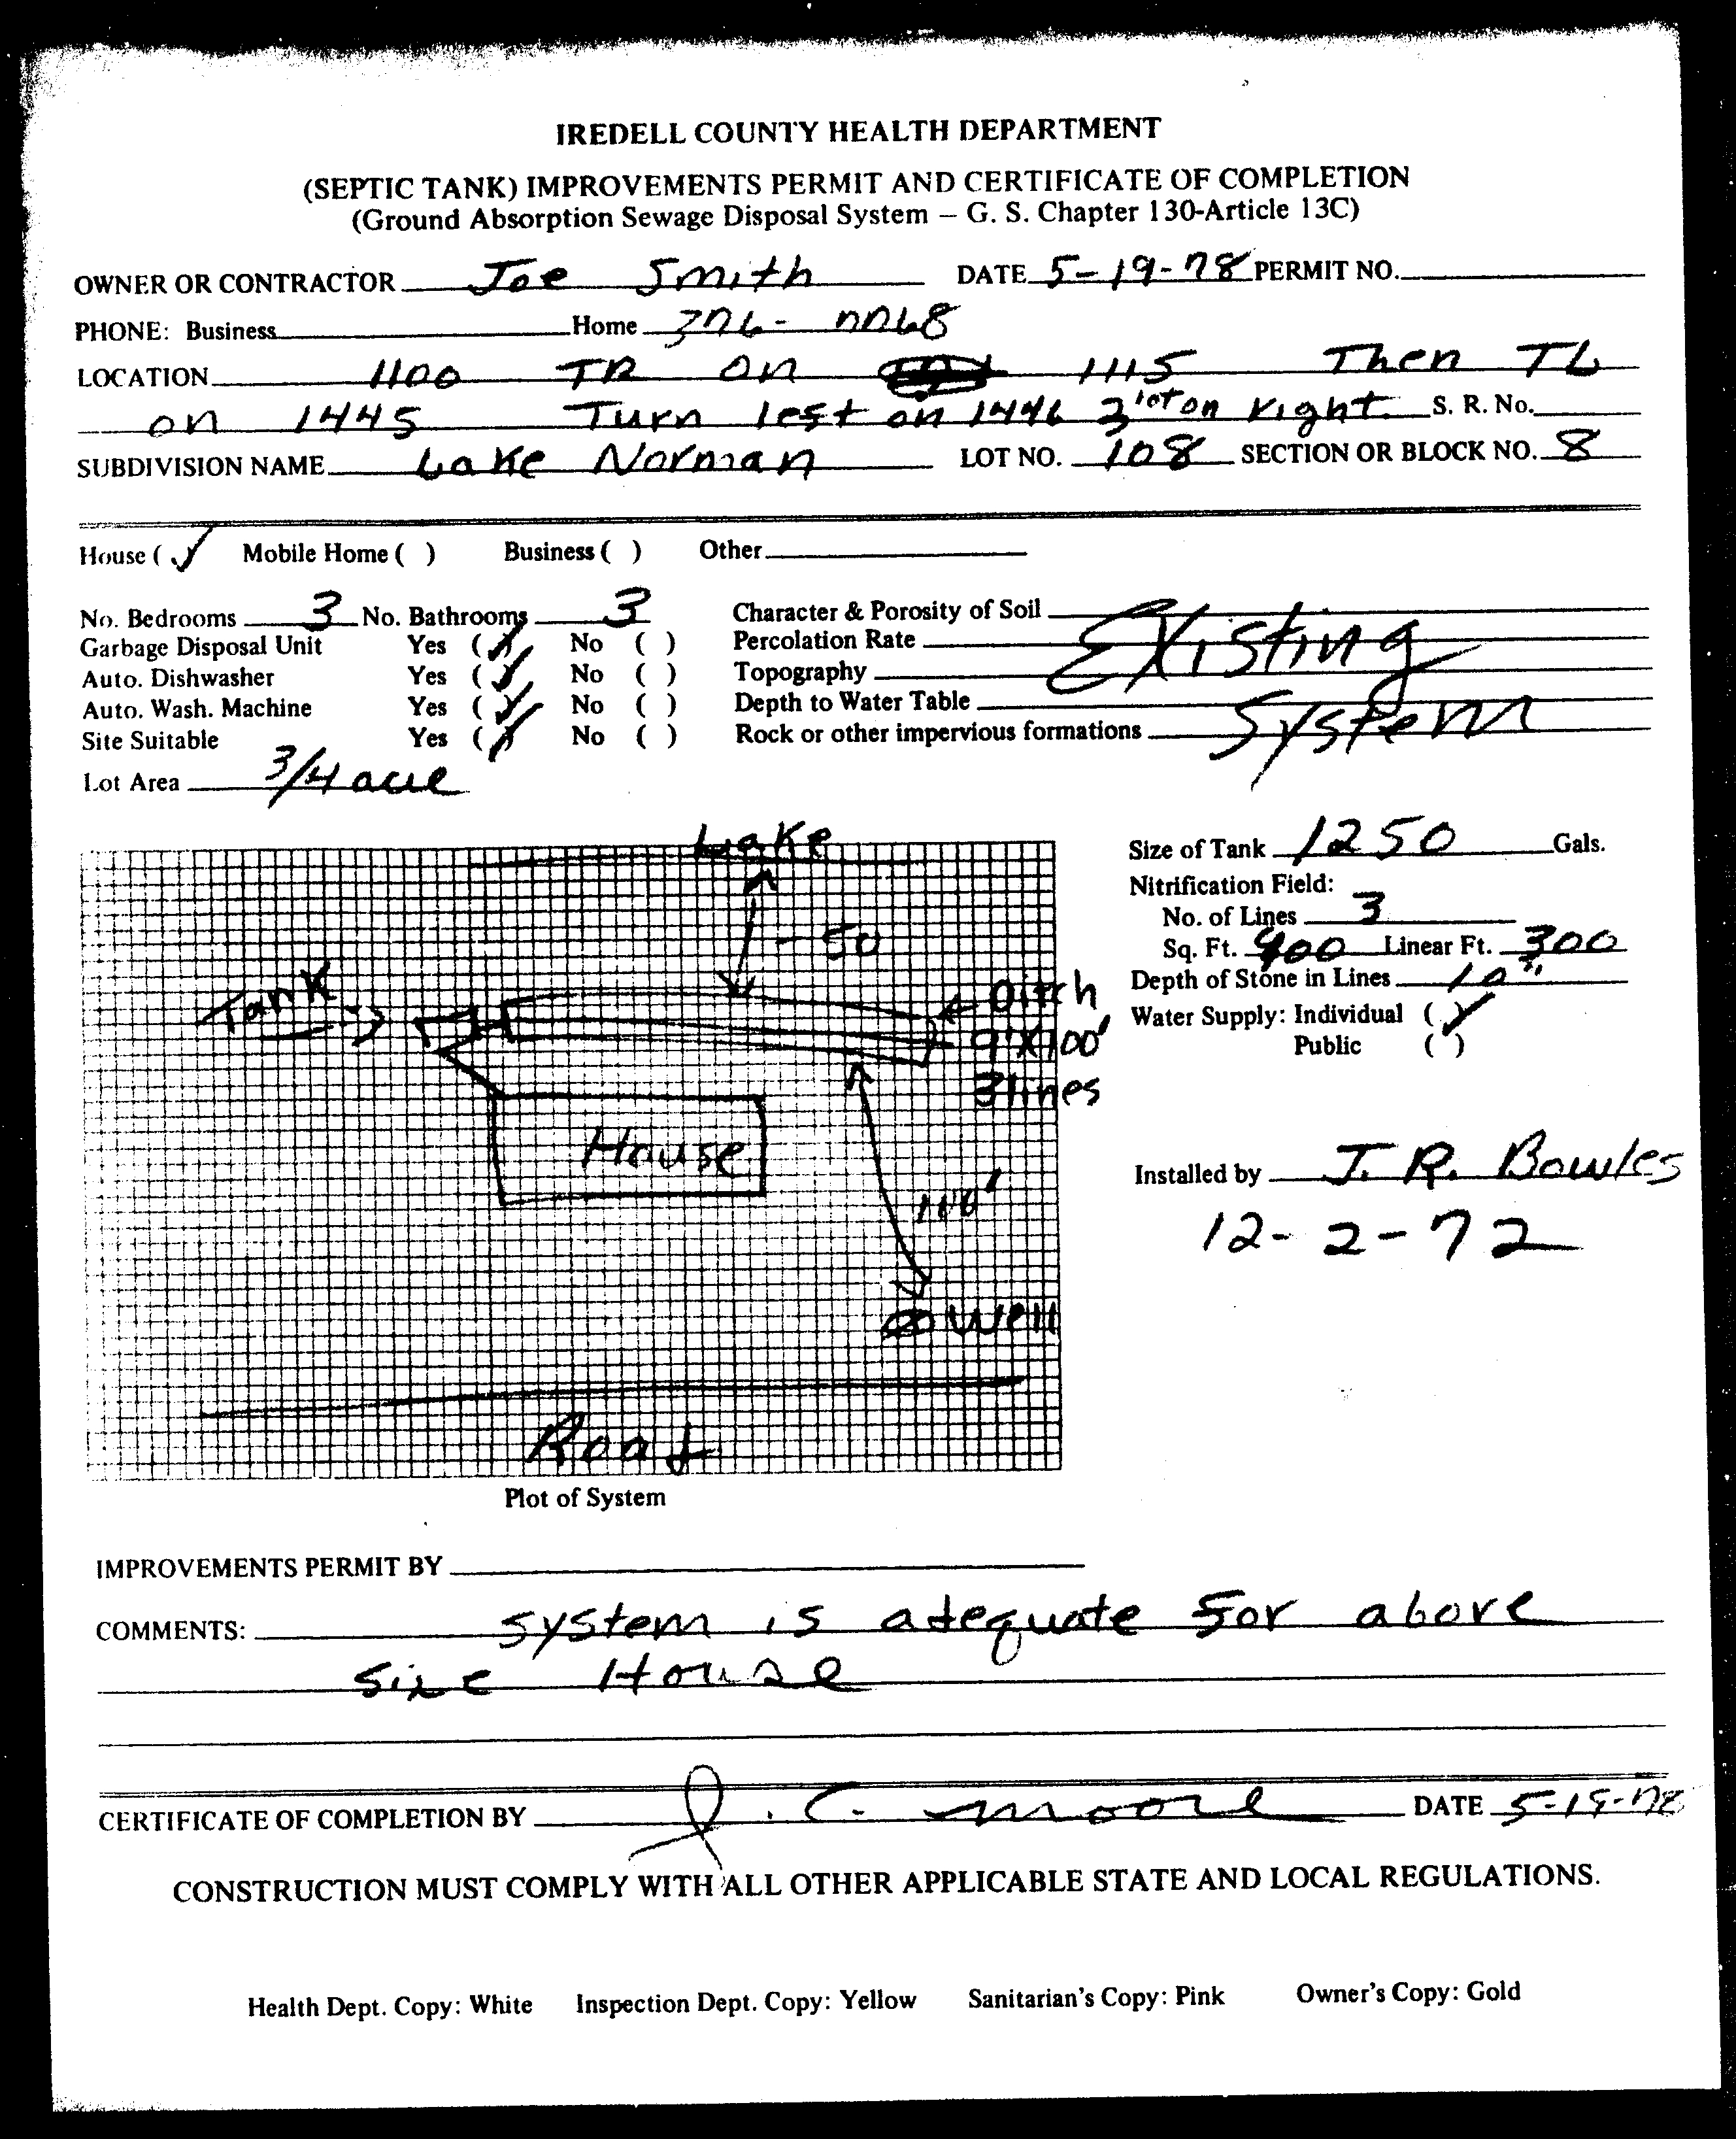 IREDELL COUNTY HEALTH DEPARTMENT
(SEPTIC TANK) IMPROVEMENTS PERMIT AND CERTIFICATE OF COMPLETION
(Ground Absorption Sewage Disposal System – G. S. Chapter 130-Article 13C)
OWNER OR CONTRACTOR Joe Smith DATE 5-19-78 PERMIT NO.
PHONE: Business Home
LOCATION 1100 TR on 1115 Then TL
on 1445 Turn left on 1446 lot on right. S. R. No.
SUBDIVISION NAME Lake Norman LOT NO. 108 SECTION OR BLOCK NO. 8
House (✓) Mobile Home ( ) Business ( ) Other
No. Bedrooms 3 No. Bathrooms 3 Character & Porosity of Soil Existing System
Garbage Disposal Unit Yes (✓) No ( ) Percolation Rate
Auto. Dishwasher Yes (✓) No ( ) Topography
Auto. Wash. Machine Yes (✓) No ( ) Depth to Water Table
Site Suitable Yes (✓) No ( ) Rock or other impervious formations
Lot Area 3/4 acre
Lake
50
Tank
Ditch
9'X100'
3 lines
House
100'
Well
Road
Plot of System
Size of Tank 1250 Gals.
Nitrification Field:
No. of Lines 3
Sq. Ft. 900 Linear Ft. 300
Depth of Stone in Lines 10"
Water Supply: Individual (✓)
Public ( )
Installed by J. R. Bowles
12-2-72
IMPROVEMENTS PERMIT BY
COMMENTS: System is adequate for above
size House
CERTIFICATE OF COMPLETION BY J. C. Moore DATE 5-19-78
CONSTRUCTION MUST COMPLY WITH ALL OTHER APPLICABLE STATE AND LOCAL REGULATIONS.
Health Dept. Copy: White Inspection Dept. Copy: Yellow Sanitarian's Copy: Pink Owner's Copy: Gold